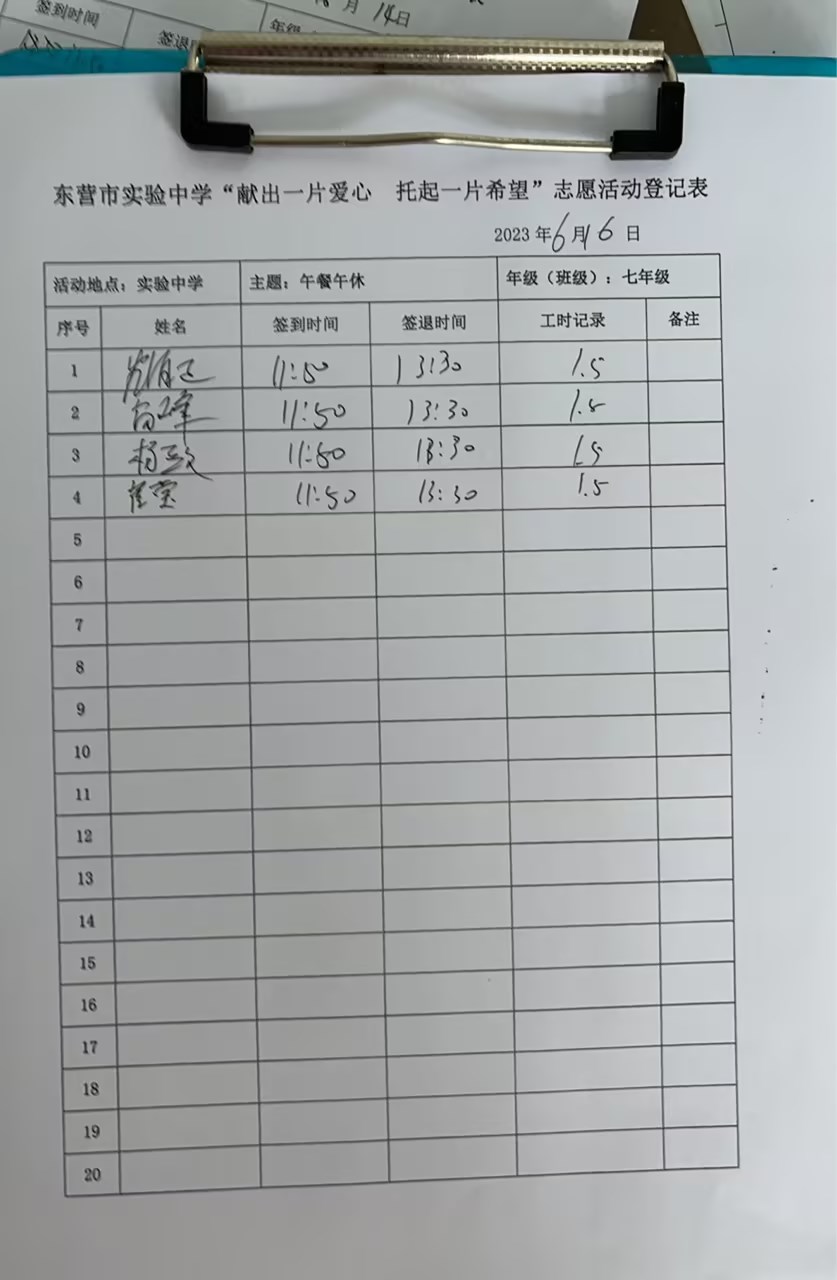 签到时间
签退
年级
月 14日
东营市实验中学“献出一片爱心 托起一片希望”志愿活动登记表
2023 年 6 月 16 日
活动地点：实验中学 主题：午餐午休 年级（班级）：七年级
序号 姓名 签到时间 签退时间 工时记录 备注
1 11:50 13:30 1.5
2 11:50 13:30 1.5
3 杨 11:50 13:30 1.5
4 崔荣 11:50 13:30 1.5
5
6
7
8
9
10
11
12
13
14
15
16
17
18
19
20